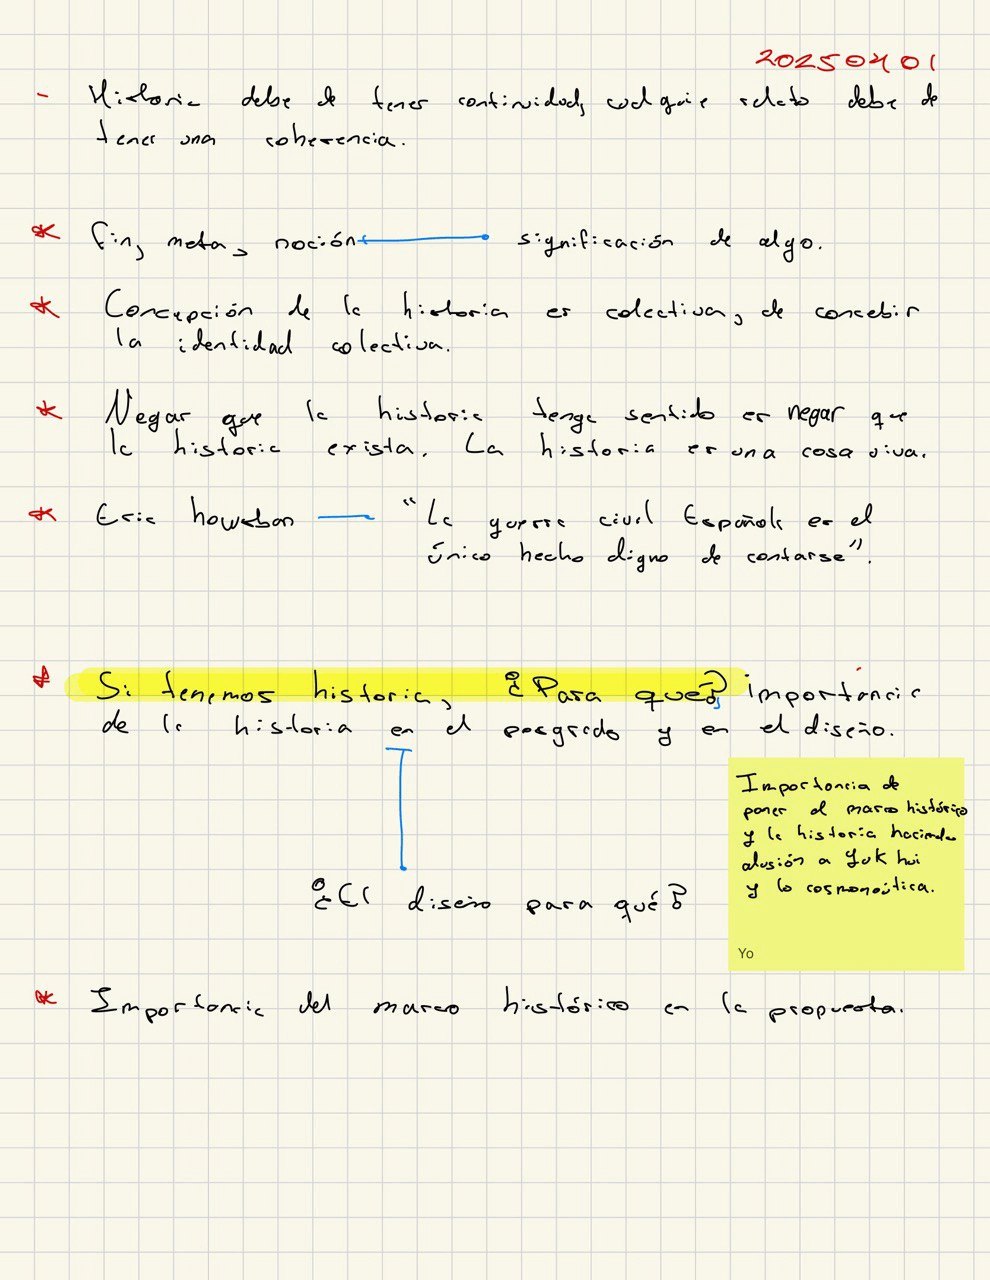 20250401
- Historia debe de tener continuidad, cualquier relato debe de
tener una coherencia.
* Fin, meta, noción significación de algo.
* Concepción de la historia es colectiva, de concebir
la identidad colectiva.
* Negar que la historia tenga sentido es negar que
la historia exista. La historia es una cosa viva.
* Eric howsbon — "La guerra civil Española es el
único hecho digno de contarse".
* Si tenemos historia, ¿Para qué? importancia
de la historia en el posgrado y en el diseño.
Importancia de
poner el marco histórico
y la historia haciendo
alusión a Yuk hui
y la cosmotécnica.
Yo
¿El diseño para qué?
* Importancia del marco histórico en la propuesta.